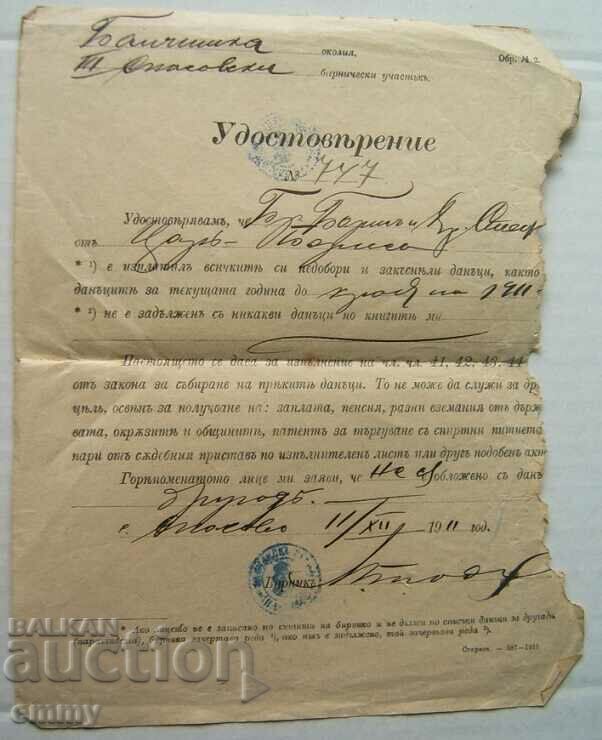 Балчишка околия.
III Спасовски бирнически участъкъ.
Обр. № 2.
Удостовѣрение
№ 747
Удостовѣрявамъ, че Бр.
отъ Царь-Борисо
* ¹) е изплатилъ всичкитѣ си недобори и закъснѣли данъци, както
данъцитѣ за текущата година до края на 1911
* ²) не е задълженъ съ никакви данъци по книгитѣ ми
Настоящето се дава за изпълнение на чл. чл. 41, 42, 43, 44
отъ закона за събиране на прѣкитѣ данъци. То не може да служи за дру
цѣль, освѣнъ за получаване на: заплата, пенсия, разни вземания отъ държ
вата, окрѫзитѣ и общинитѣ, патентъ за търгуване съ спиртни питиета
пари отъ сѫдебния приставъ по изпълнителенъ листъ или другъ подобенъ акт
Горѣпоменатото лице ми заяви, че не е обложено съ данъ
другадѣ.
с. Спасово 11/XII 1911 год.
Бирникъ
* Ако лицето не е записано по книгитѣ на бирника и не дължи по списъци данъци за другадѣ
бирника зачертава реда ¹), ако пъкъ е задължено, той зачертава реда ²).
587—1911
BALKAN
auction
emmy